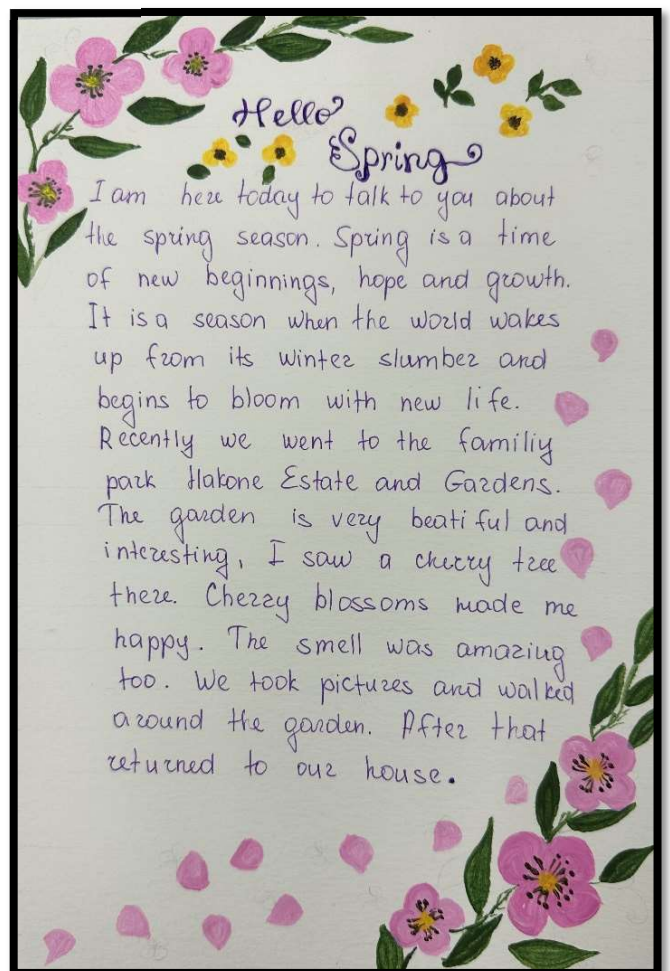 Hello
Spring
I am here today to talk to you about
the spring season. Spring is a time
of new beginnings, hope and growth.
It is a season when the world wakes
up from its winter slumber and
begins to bloom with new life.
Recently we went to the familiy
park Hakone Estate and Gardens.
The garden is very beatiful and
interesting, I saw a cherry tree
there. Cherry blossoms made me
happy. The smell was amazing
too. We took pictures and walked
around the garden. After that
returned to our house.